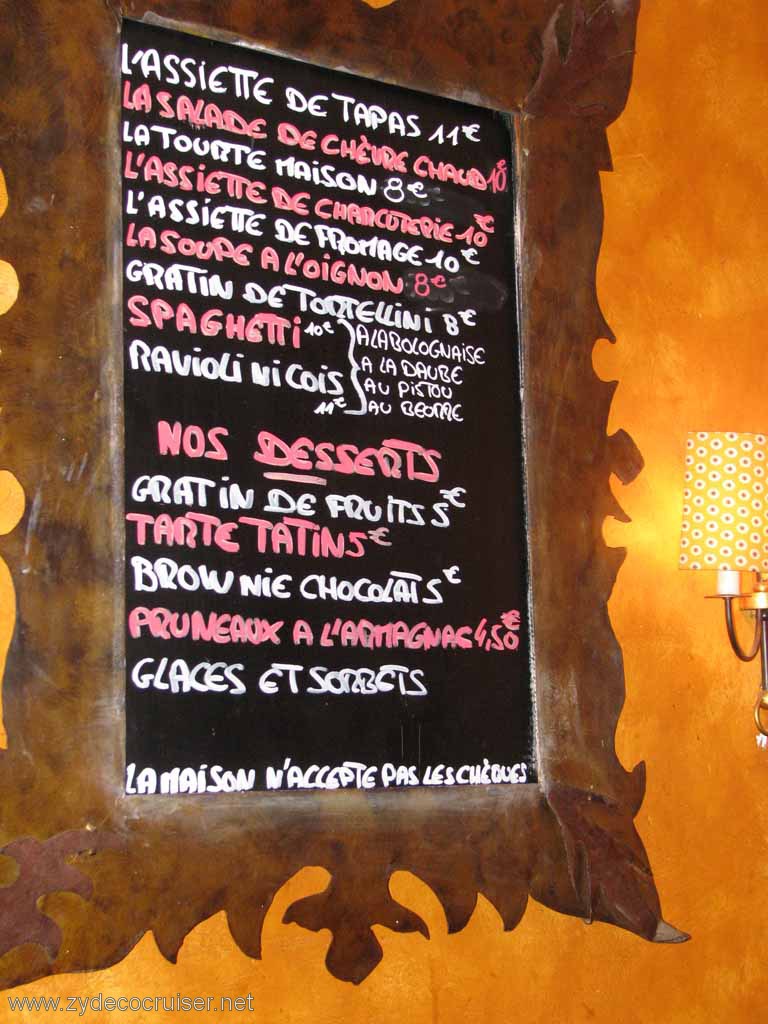 L'ASSIETTE DE TAPAS 11€
LA SALADE DE CHÈVRE CHAUD 10€
LA TOURTE MAISON 8€
L'ASSIETTE DE CHARCUTERIE 10€
L'ASSIETTE DE FROMAGE 10€
LA SOUPE A L'OIGNON 8€
GRATIN DE TORTELLINI 8€
SPAGHETTI 10€
RAVIOLI NICOIS
11€
A LA BOLOGNAISE
A LA DAUBE
AU PISTOU
AU BEURRE
NOS DESSERTS
GRATIN DE FRUITS 5€
TARTE TATIN 5€
BROWNIE CHOCOLAT 5€
PRUNEAUX A L'ARMAGNAC 4,50€
GLACES ET SORBETS
LA MAISON N'ACCEPTE PAS LES CHÈQUES
www.zydecocruiser.net